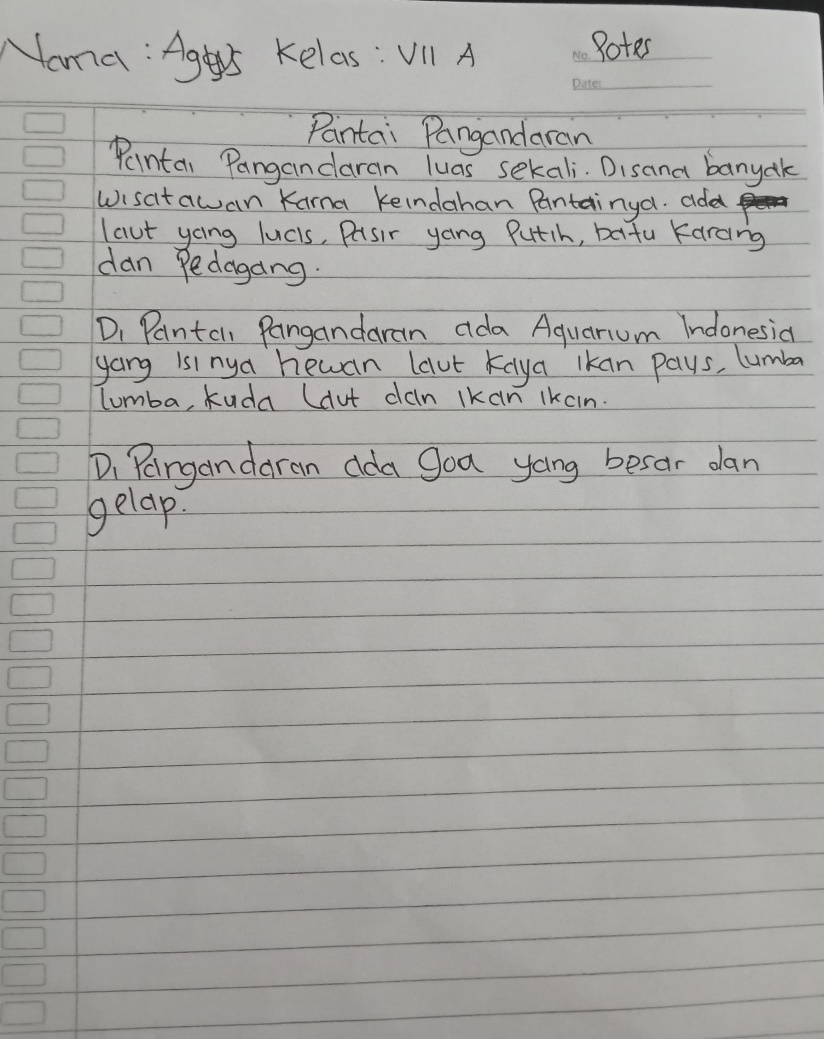 Nama : Agus Kelas : VII A No. Potes
Date:
Pantai Pangandaran
Pantai Pangandaran luas sekali. Disana banyak
wisatawan karna keindahan Pantainya. ada
laut yang luas, Pasir yang Putih, batu karang
dan Pedagang.
Di Pantai Pangandaran ada Aquarium Indonesia
yang isi nya hewan laut kaya ikan pays, lumba
lumba, kuda laut dan ikan ikan.
Di Pangandaran ada goa yang besar dan
gelap.